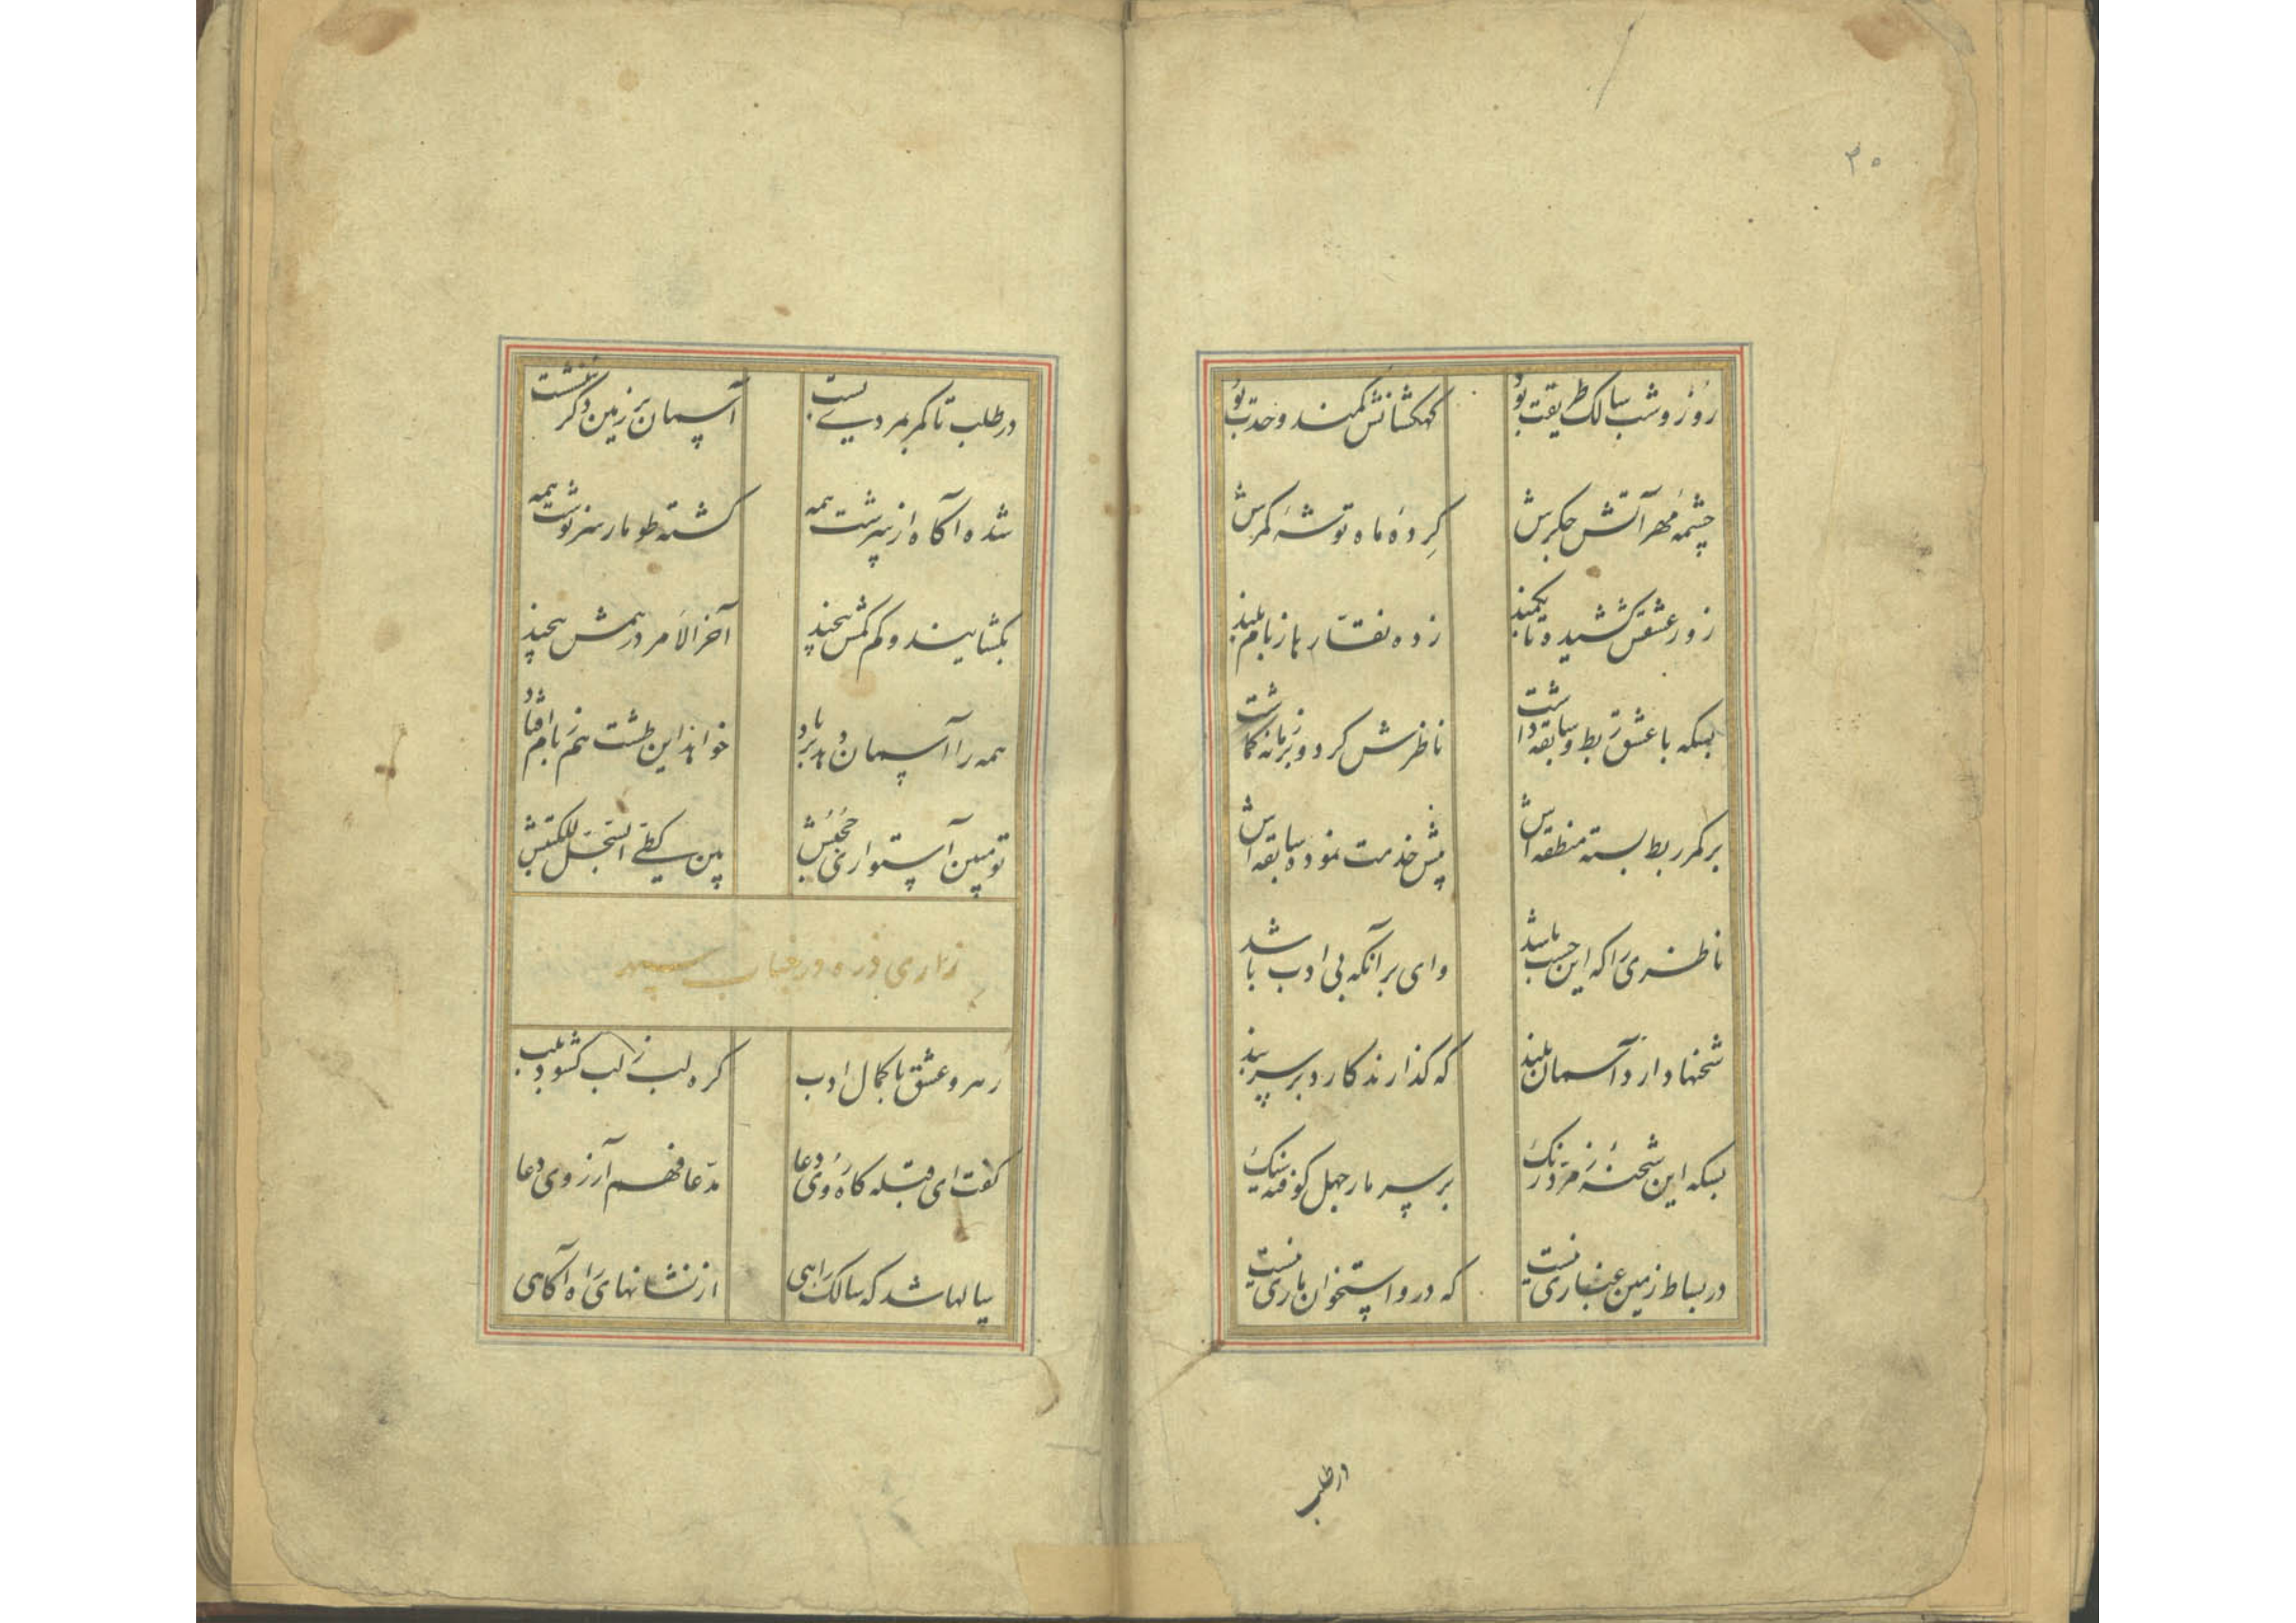 ۳۰
روز و شب سالک طریقت بود کهکشانش کمند وحدت بود
چشمهٔ مهر آتش جگرش کردهٔ ماه توشهٔ کمرش
زور عشقش کشیده تا بکمند زده نقار ها ز بام بلند
بسکه با عشق ربط و سابقه داشت ناظرش کرد و بر زمانه کماشت
بر کمر ربط بسته منطقه اش پیش خدمت نموده سابقه اش
ناظری را که این حسب باشد وای بر آنکه بی ادب باشد
شحنها دارد آسمان بلند که گذارند کارد بر سر بند
بسکه این شحنه زمرد رنگ بر سر مار جهل کوفته سنگ
در بساط زمین غباری نیست که در و استخوان ماری نیست
در طلب
در طلب تا کمر بمردی بست آسمان بر زمین دگر ننشست
شده آگاه از سرشت همه گشته طومار سرنوشت همه
بگشایند و کم کمش پیچند آخر الامر در همش پیچند
همه را آسمان دهد بر باد خواهد این طشت هم ز بام افتاد
تو مبین استواری جنبش بین کطی السجل للکتبش
زاری ذره در جناب سپهر
رهرو عشق با کمال ادب کره لب ز لب گشود بلب
گفت ای قبله گاه روی دعا مدعا فهم آرزوی دعا
سالها شد که سالک راهی از نشانهای راه آگاهی